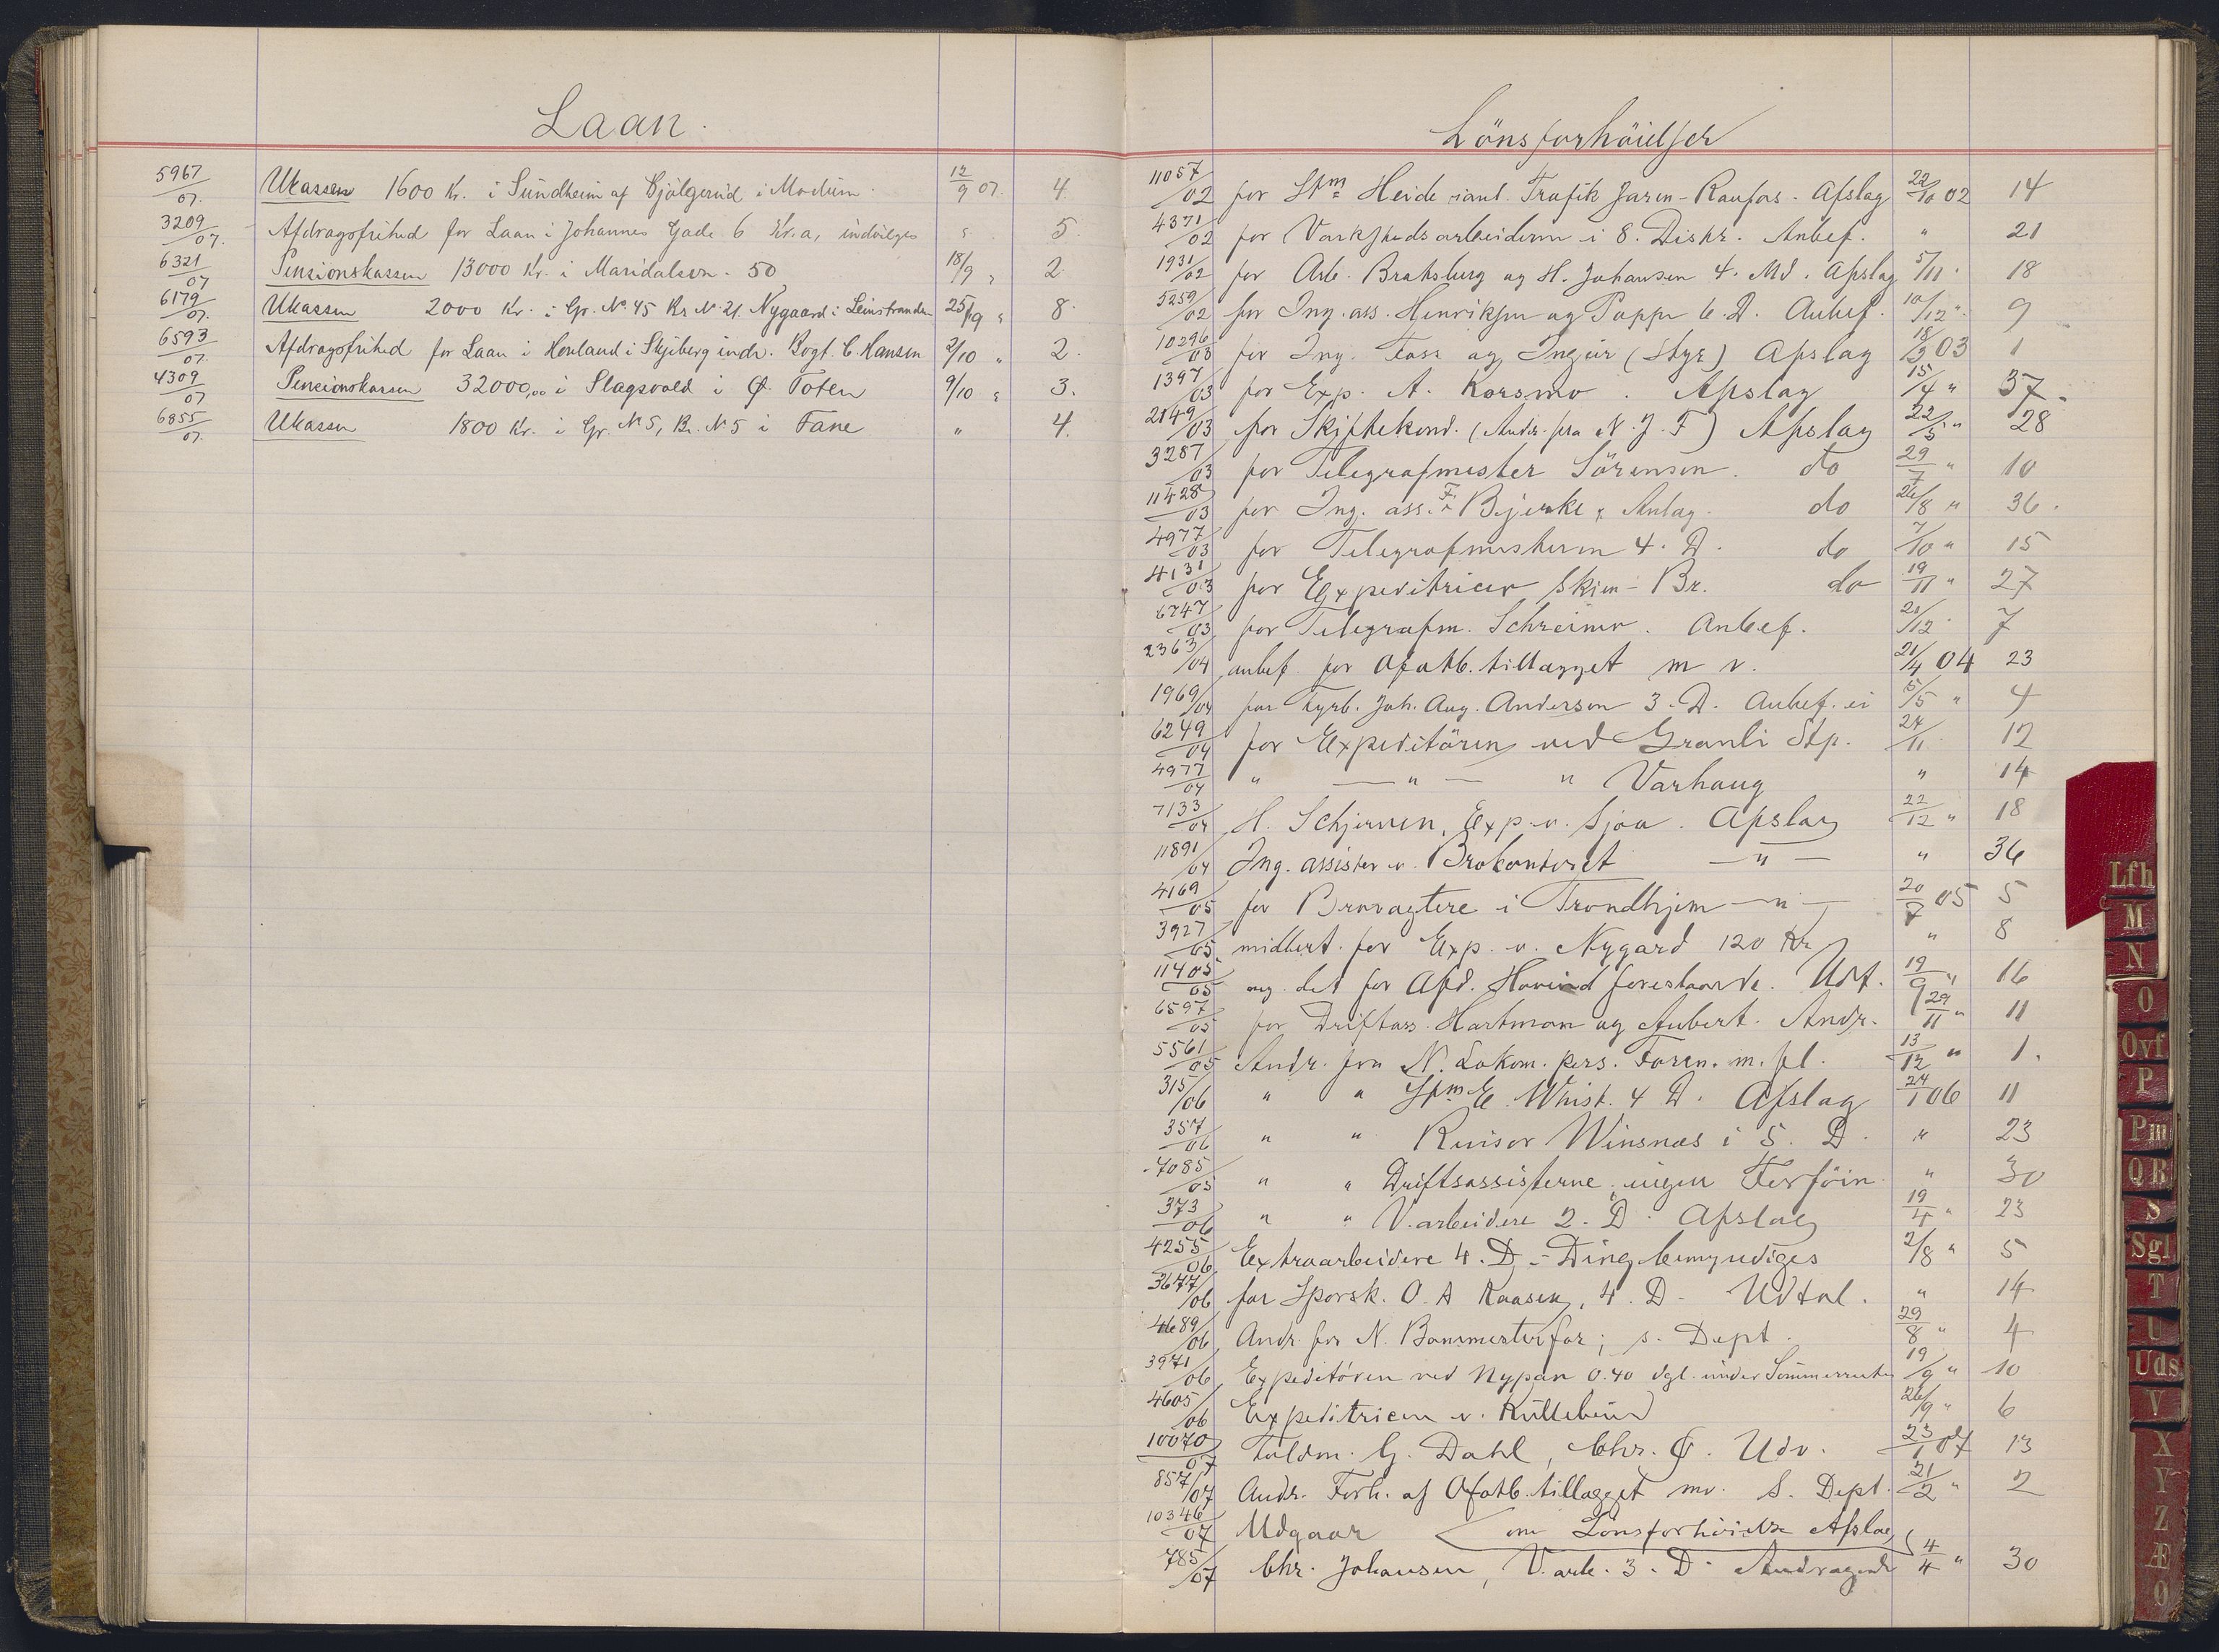 Laan.
5967/07. Ukassen 1600 Kr. i Sundheim af Gjölgerud i Modum. 12/9 07. 4.
3209/07. Afdragsfrihed for Laan i Johannes Gade 6 Kr.a, indvilges " 5.
6321/07 Pensionskassen 13000 Kr. i Maridalsvn. 50 18/9 " 2.
6179/07. Ukassen 2000 Kr. i Gr. No. 45 Br. No 21. Nygaard i Leinstranden 25/9 " 8.
6593/07. Afdragsfrihed for Laan i Henland i Skjeberg indv. Vogt. C. Hansen 2/10 " 2.
4309/07 Pensionskassen 32000,00 i Slagsvold i Ø. Toten 9/10 " 3.
6855/07. Ukassen 1800 Kr. i Gr. No 5, Br. No 5 i Fane " 4.
Lönsforhöielser
11057/02 for Stm Heide Trafik Jaren-Raufos. Afslag 22/10 02 14
4371/02 for Værkstedsarbeiderne i 8. Distr. Anbef. " 21
1931/02 for Arb. Bratsberg og H. Johansen 4. Md. Afslag 5/11 18
5259/02 for Ing. ass. Henriksen og Poppe 6. D. Anbef. 10/12 " 9
10296/03 for Ing. og (Styr) Afslag 18/3 03 1
1397/03 for Exp. A. Korsmo. Afslag 15/4 " 37.
2149/03 for Skiftekond. (Andr. fra N. J. F) Afslag 22/5 " 28
3287/03 for Telegrafmester Sörensen. do 29/7 " 10
11428/03 for Ing. ass. F. Bjerke, Anlag. do 26/8 " 36.
4977/03 for Telegrafmesteren 4. D. do 7/10 " 15
4131/03 for Expeditricer Skien-Br. do 19/11 " 27
6747/03 for Telegrafm. Schreiner. Anbef. 21/12 7
2363/04 anbef. for Ofotb. tillægget m v. 21/4 04 23
1969/04 for Fyrb. Joh. Aug. Anderson 3. D. Anbef. ei 5/5 " 4
6249/04 for Expeditören ved Granli Stp. 24/11 12
4977/04 " — " — " Varhaug " 14
7133/04 H. Schjerven, Exp. v. Sjoa. Afslag 22/12 " 18
11891/04 Ing. assister v. Brokontoret — " — " 36
4169/05 for Brovagtere i Trondhjem — " — 20/7 05 5
3927/05 midlert. for Exp. v. Nygard 120 Kr " 8
11405/05 ang. det for Afd. Hovind foreslaaede. Udt. 19/9 " 16
6597/05 for Driftass. Hartman og Aubert. Andr. 29/11 " 11
5561/05 Andr. fra N. Lokom. pers. Foren. m. fl. 13/12 " 1.
315/06 " " Stm E. Whist. 4 D. Afslag 24/1 06 11
357/06 " " Revisor Winsnæs i 5. D. " 23
7085/05 " " Driftsassisterne, ingen Forföin. " 30
373/06 " " V. arbeidere 2. D. Afslag 19/4 " 23
4255/06 Extraarbeidere 4. D - Ding bemyndiges 2/8 " 5
3677/06 for Sporsk. O. A Kaasen, 4. D - Udtal. " 14
4689/06 Andr. for N. Banemesterfor; s. Dept. 29/8 " 4
3971/06 Expeditören ved Nypan 0.40 dgl. under Sommerruten 19/9 " 10
4605/06 Expeditricen v. Kullebund 26/9 " 6
10070/07 Toldm. G. Dahl, Chr. Ø. Udv. 23/1 07 13
857/07 Andr. Forh. af Ofotb. tillægget mv. S. Dept. 21/2 " 2
10346/07 Udgaar
785/07 Chr. Johansen, V. arb. 3. D. Andragende om Lönsforhöielse Afslag 4/4 " 30
Lfh
M
N
O
Ovf
P
Pm
Q R
S
Sgl
T
U
Uds
V
X
Y
Z
Æ
Ø